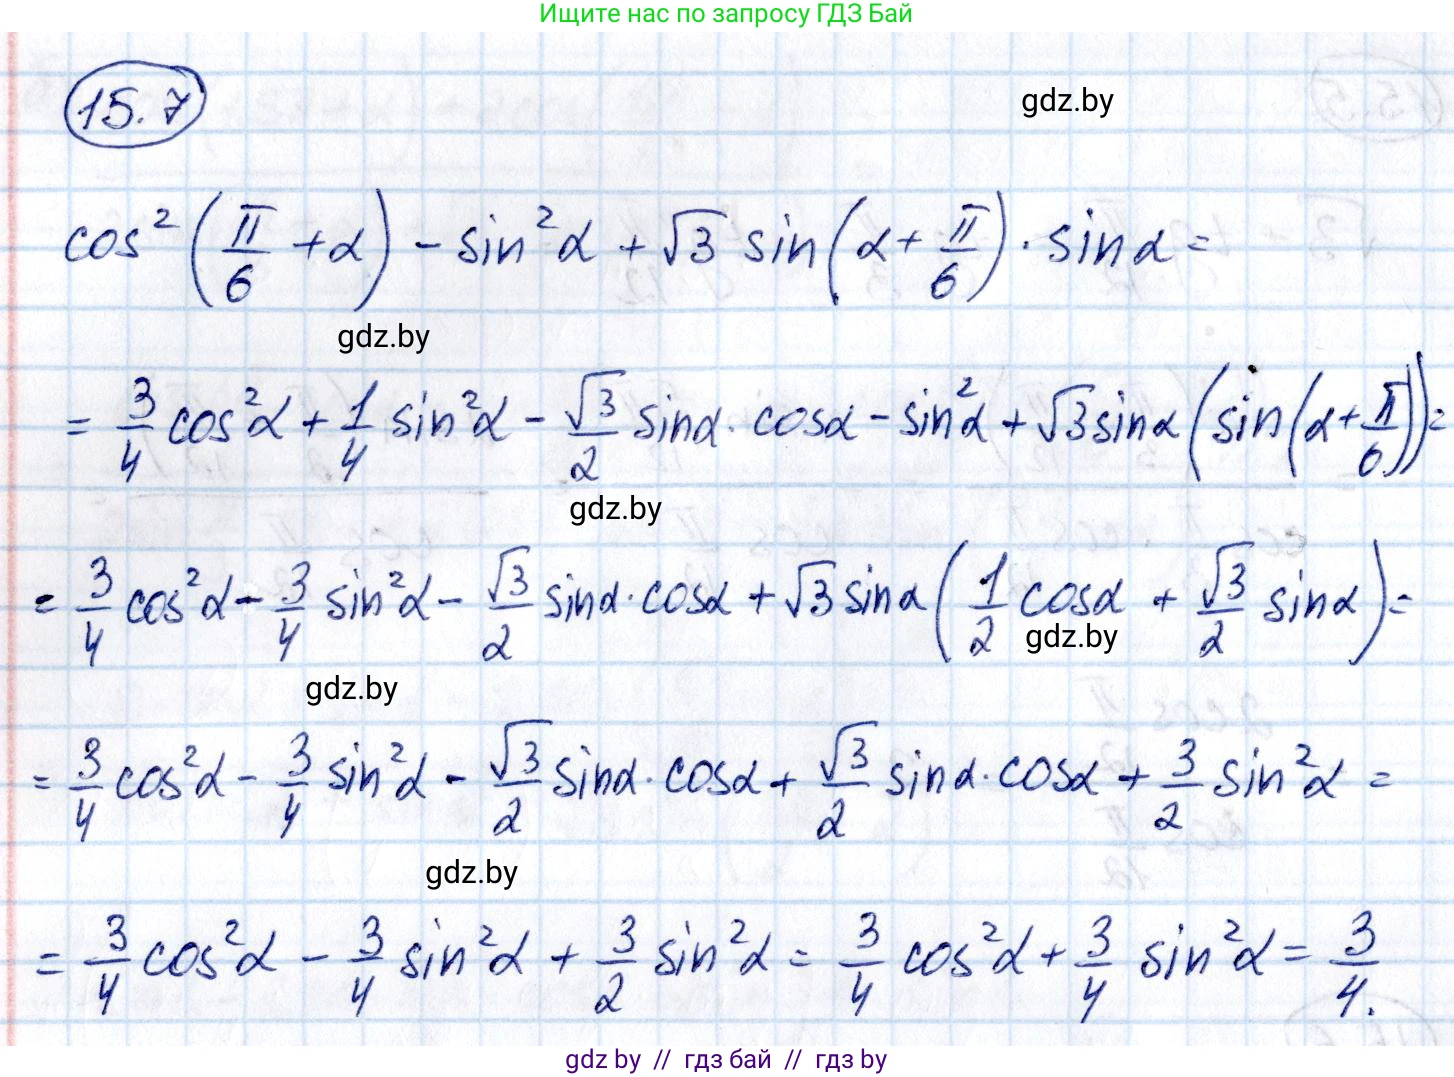 Ищите нас по запросу ГДЗ Бай
15.7
gdz.by
cos²(π/6 + α) - sin²α + √3 sin(α + π/6) · sinα =
gdz.by
= 3/4 cos²α + 1/4 sin²α - √3/2 sinα · cosα - sin²α + √3 sinα (sin(α + π/6)) =
gdz.by
= 3/4 cos²α - 3/4 sin²α - √3/2 sinα · cosα + √3 sinα (1/2 cosα + √3/2 sinα) =
gdz.by
gdz.by
= 3/4 cos²α - 3/4 sin²α - √3/2 sinα · cosα + √3/2 sinα · cosα + 3/2 sin²α =
gdz.by
= 3/4 cos²α - 3/4 sin²α + 3/2 sin²α = 3/4 cos²α + 3/4 sin²α = 3/4.
gdz by // гдз бай // гдз by